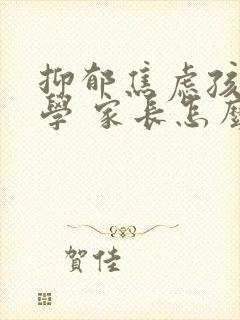 抑郁焦虑孩
學 家長怎麼
賀佳